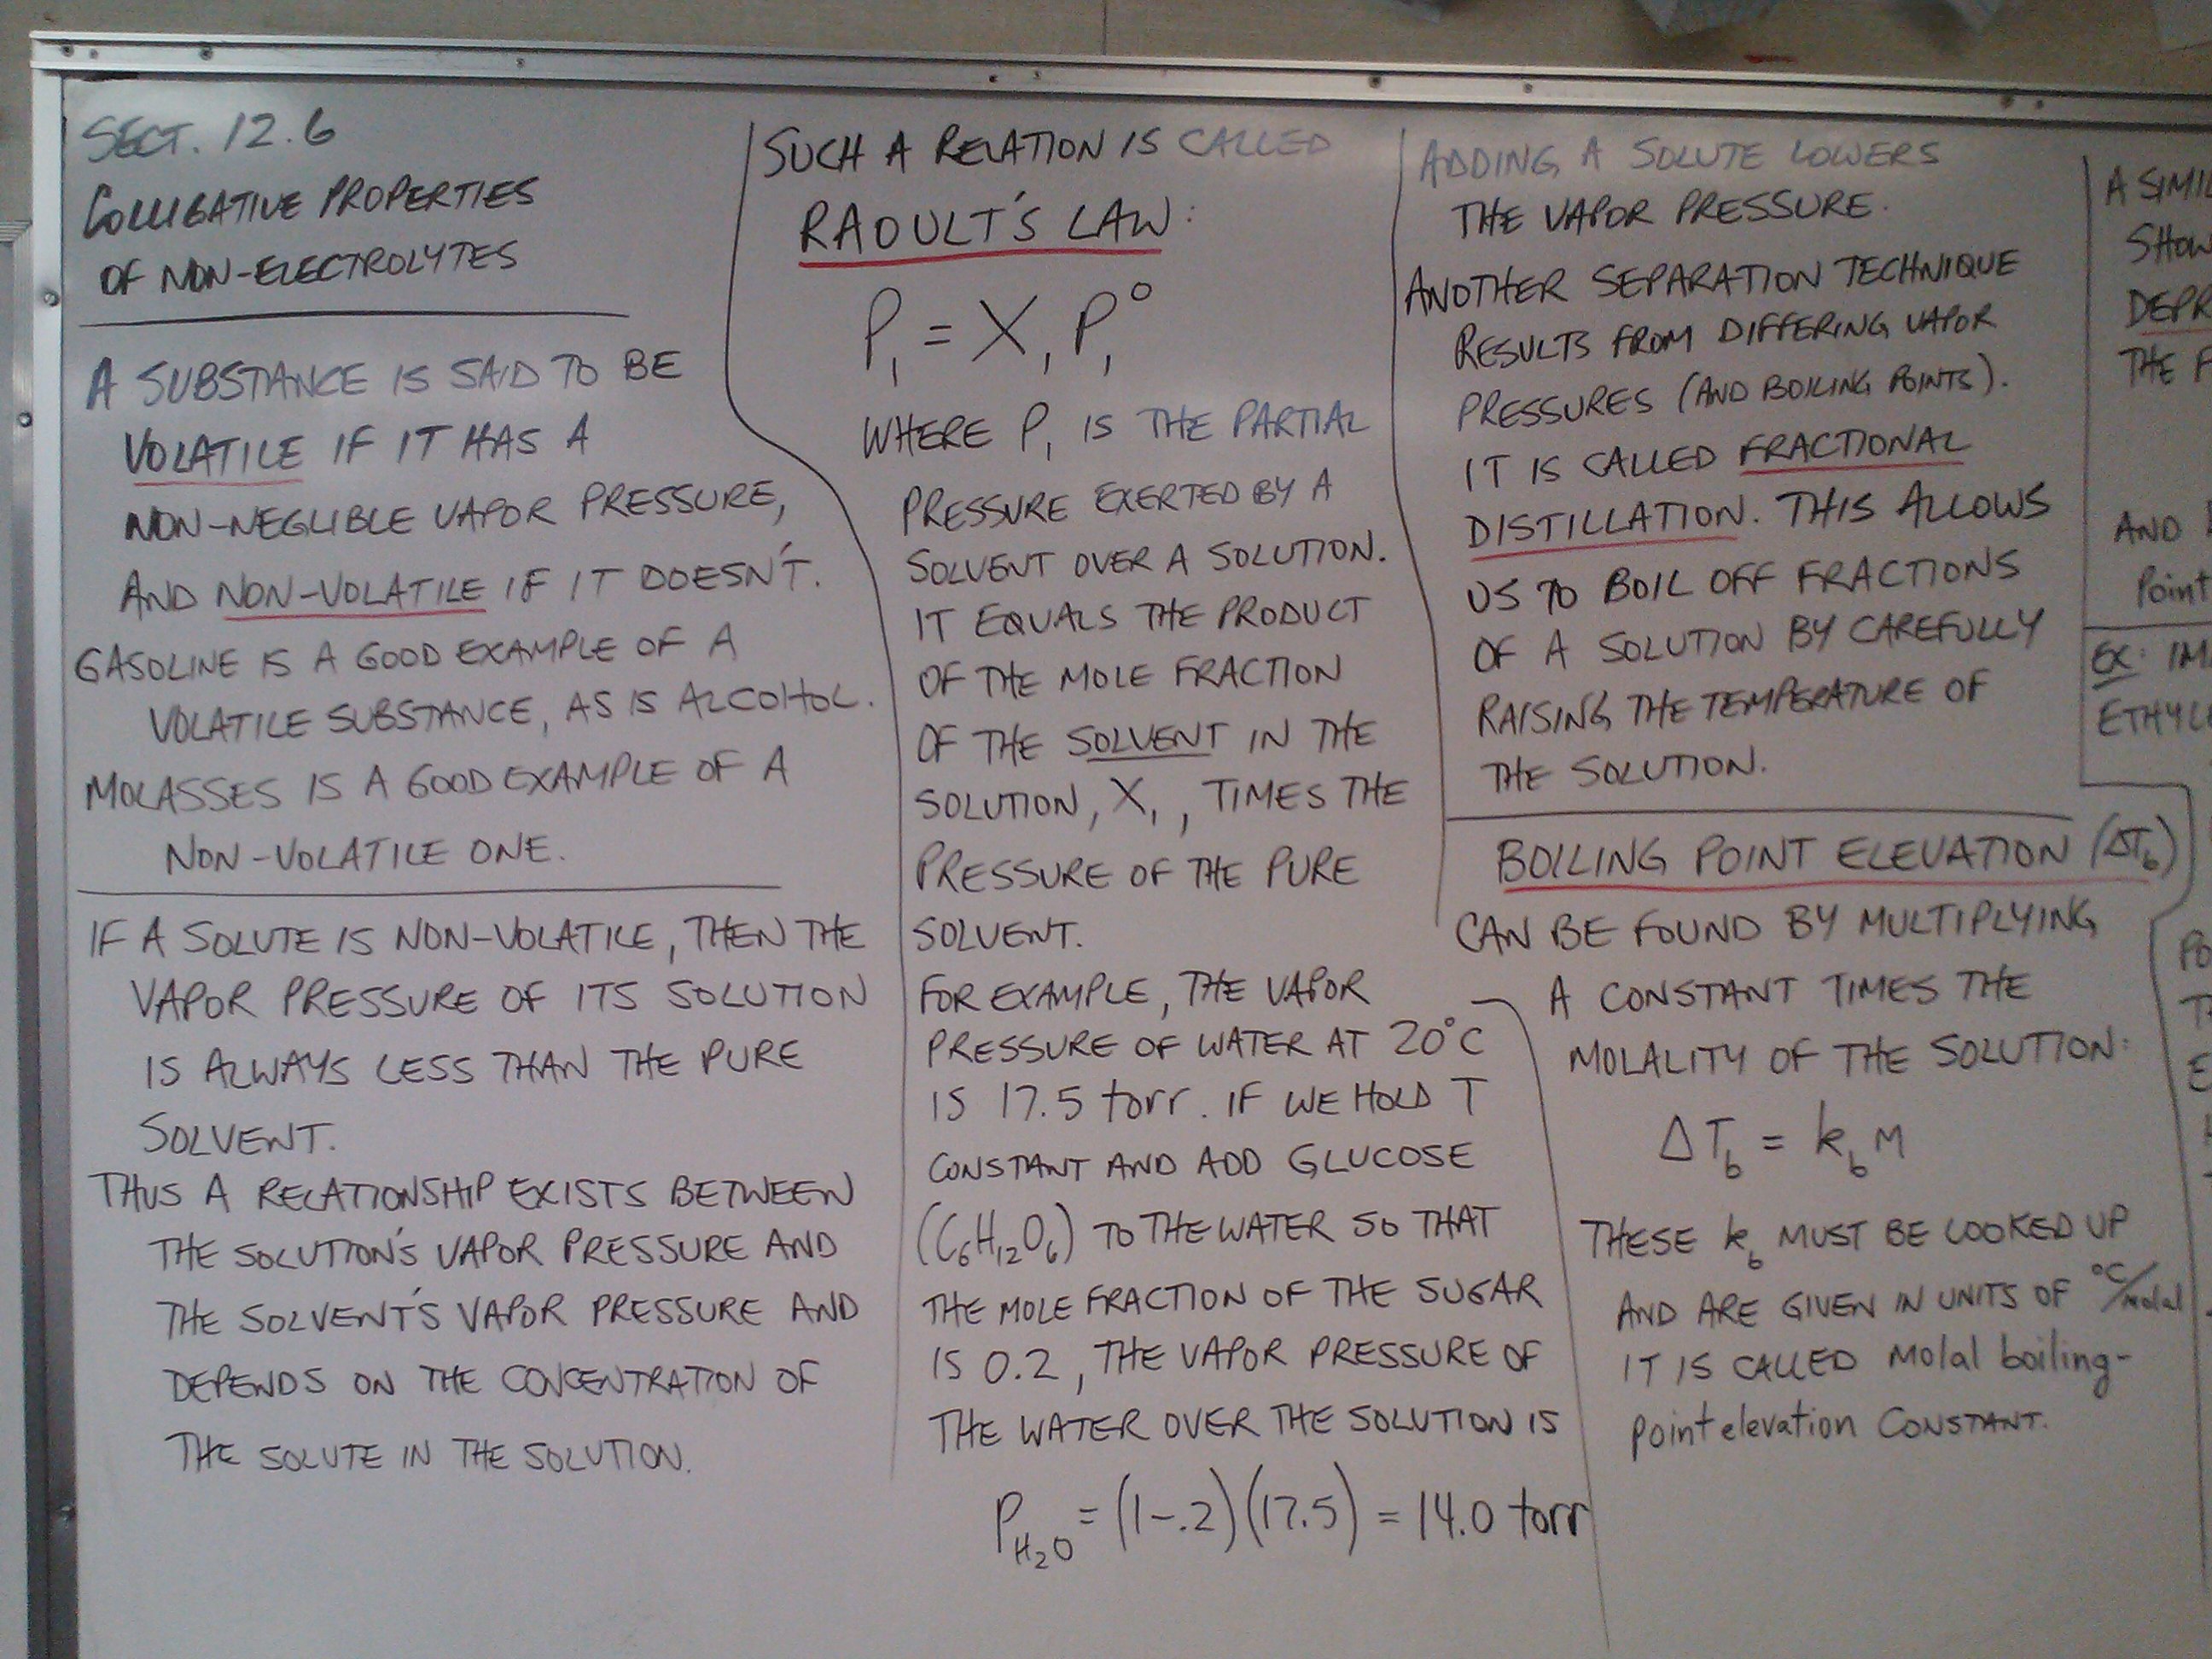 SECT. 12.6
COLLIGATIVE PROPERTIES
OF NON-ELECTROLYTES
A SUBSTANCE IS SAID TO BE
VOLATILE IF IT HAS A
NON-NEGLIBLE VAPOR PRESSURE,
AND NON-VOLATILE IF IT DOESN'T.
GASOLINE IS A GOOD EXAMPLE OF A
VOLATILE SUBSTANCE, AS IS ALCOHOL.
MOLASSES IS A GOOD EXAMPLE OF A
NON-VOLATILE ONE.
IF A SOLUTE IS NON-VOLATILE, THEN THE
VAPOR PRESSURE OF ITS SOLUTION
IS ALWAYS LESS THAN THE PURE
SOLVENT.
THUS A RELATIONSHIP EXISTS BETWEEN
THE SOLUTION'S VAPOR PRESSURE AND
THE SOLVENT'S VAPOR PRESSURE AND
DEPENDS ON THE CONCENTRATION OF
THE SOLUTE IN THE SOLUTION.
SUCH A RELATION IS CALLED
RAOULT'S LAW:
P₁ = X₁P₁°
WHERE P₁ IS THE PARTIAL
PRESSURE EXERTED BY A
SOLVENT OVER A SOLUTION.
IT EQUALS THE PRODUCT
OF THE MOLE FRACTION
OF THE SOLVENT IN THE
SOLUTION, X₁, TIMES THE
PRESSURE OF THE PURE
SOLVENT.
FOR EXAMPLE, THE VAPOR
PRESSURE OF WATER AT 20°C
IS 17.5 torr. IF WE HOLD T
CONSTANT AND ADD GLUCOSE
(C₆H₁₂O₆) TO THE WATER SO THAT
THE MOLE FRACTION OF THE SUGAR
IS 0.2, THE VAPOR PRESSURE OF
THE WATER OVER THE SOLUTION IS
P_H₂O = (1-.2)(17.5) = 14.0 torr
ADDING A SOLUTE LOWERS
THE VAPOR PRESSURE.
ANOTHER SEPARATION TECHNIQUE
RESULTS FROM DIFFERING VAPOR
PRESSURES (AND BOILING POINTS).
IT IS CALLED FRACTIONAL
DISTILLATION. THIS ALLOWS
US TO BOIL OFF FRACTIONS
OF A SOLUTION BY CAREFULLY
RAISING THE TEMPERATURE OF
THE SOLUTION.
BOILING POINT ELEVATION (ΔT_b)
CAN BE FOUND BY MULTIPLYING
A CONSTANT TIMES THE
MOLALITY OF THE SOLUTION:
ΔT_b = k_b M
THESE k_b MUST BE LOOKED UP
AND ARE GIVEN IN UNITS OF °C/molal
IT IS CALLED Molal boiling-
point elevation CONSTANT.
A
SHOW
THE
AND
Point
EX: